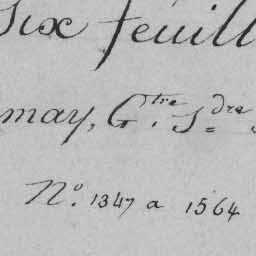 Six feuill
may, G.tre S=dre
N.o 1347 a 1564